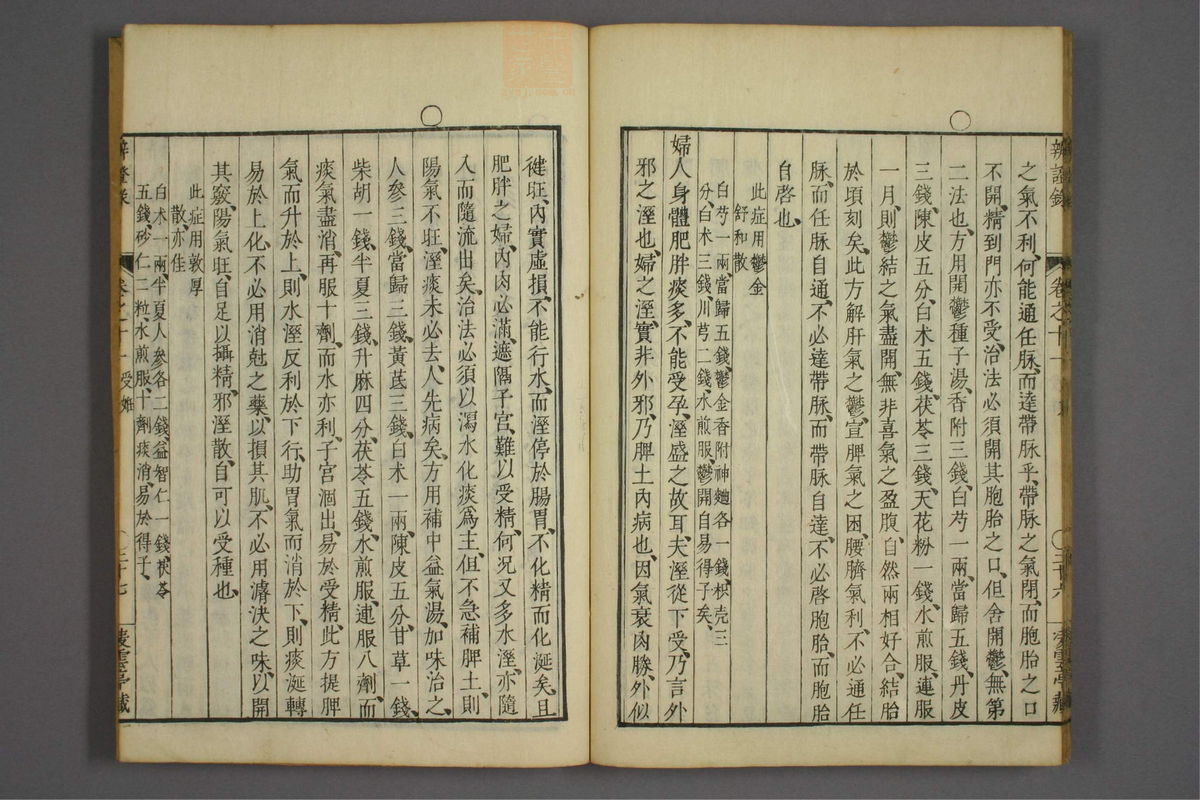 辨證錄 卷之十一 受妊
之氣不利、何能通任脉、而達帶脉乎、帶脉之氣閉、而胞胎之口
不開、精到門亦不受、治法必須開其胞胎之口、但舍開鬱、無第
二法也、方用開鬱種子湯、香附三錢、白芍一兩、當歸五錢、丹皮
三錢、陳皮五分、白朮五錢、茯苓三錢、天花粉一錢、水煎服、連服
一月、則鬱結之氣盡開、無非喜氣之盈腹、自然兩相好合、結胎
於頃刻矣、此方解肝氣之鬱、宣脾氣之困、腰臍氣利、不必通任
脉、而任脉自通、不必達帶脉、而帶脉自達、不必啓胞胎、而胞胎
自啓也、
此症用鬱金
舒和散
白芍一兩、當歸五錢、鬱金香附神麯各一錢、枳壳三
分、白术三錢、川芎二錢、水煎服、鬱開自易得子矣、
婦人身體肥胖、痰多、不能受孕、溼盛之故耳、夫溼從下受、乃言外
邪之溼也、婦之溼、實非外邪、乃脾土內病也、因氣衰肉勝、外似
健旺、內實虛損、不能行水、而溼停於腸胃、不化精而化涎矣、且
肥胖之婦、內肉必滿、遮隔子宮、難以受精、何况又多水溼、亦隨
入而隨流出矣、治法必須以瀉水化痰爲主、但不急補脾土、則
陽氣不旺、溼痰未必去、人先病矣、方用補中益氣湯、加味治之、
人參三錢、當歸三錢、黃芪三錢、白术一兩、陳皮五分、甘草一錢、
柴胡一錢、半夏三錢、升麻四分、茯苓五錢、水煎服、連服八劑、而
痰氣盡消、再服十劑、而水亦利、子宮涸出、易於受精、此方提脾
氣而升於上、則水溼反利於下行、助胃氣而消於下、則痰涎轉
易於上化、不必用消尅之藥、以損其肌、不必用濬決之味、以開
其竅、陽氣旺、自足以攝精、邪溼散、自可以受種也、
此症用敦厚
散、亦佳
白术一兩、半夏人參各二錢、益智仁一錢、茯苓
五錢、砂仁二粒、水煎服、十劑痰消、易於得子、
辨證錄 卷之十一 受妊 二十七